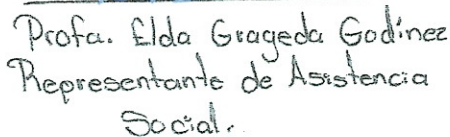 Profa. Elda Grageda Godínez
Representante de Asistencia
Social.